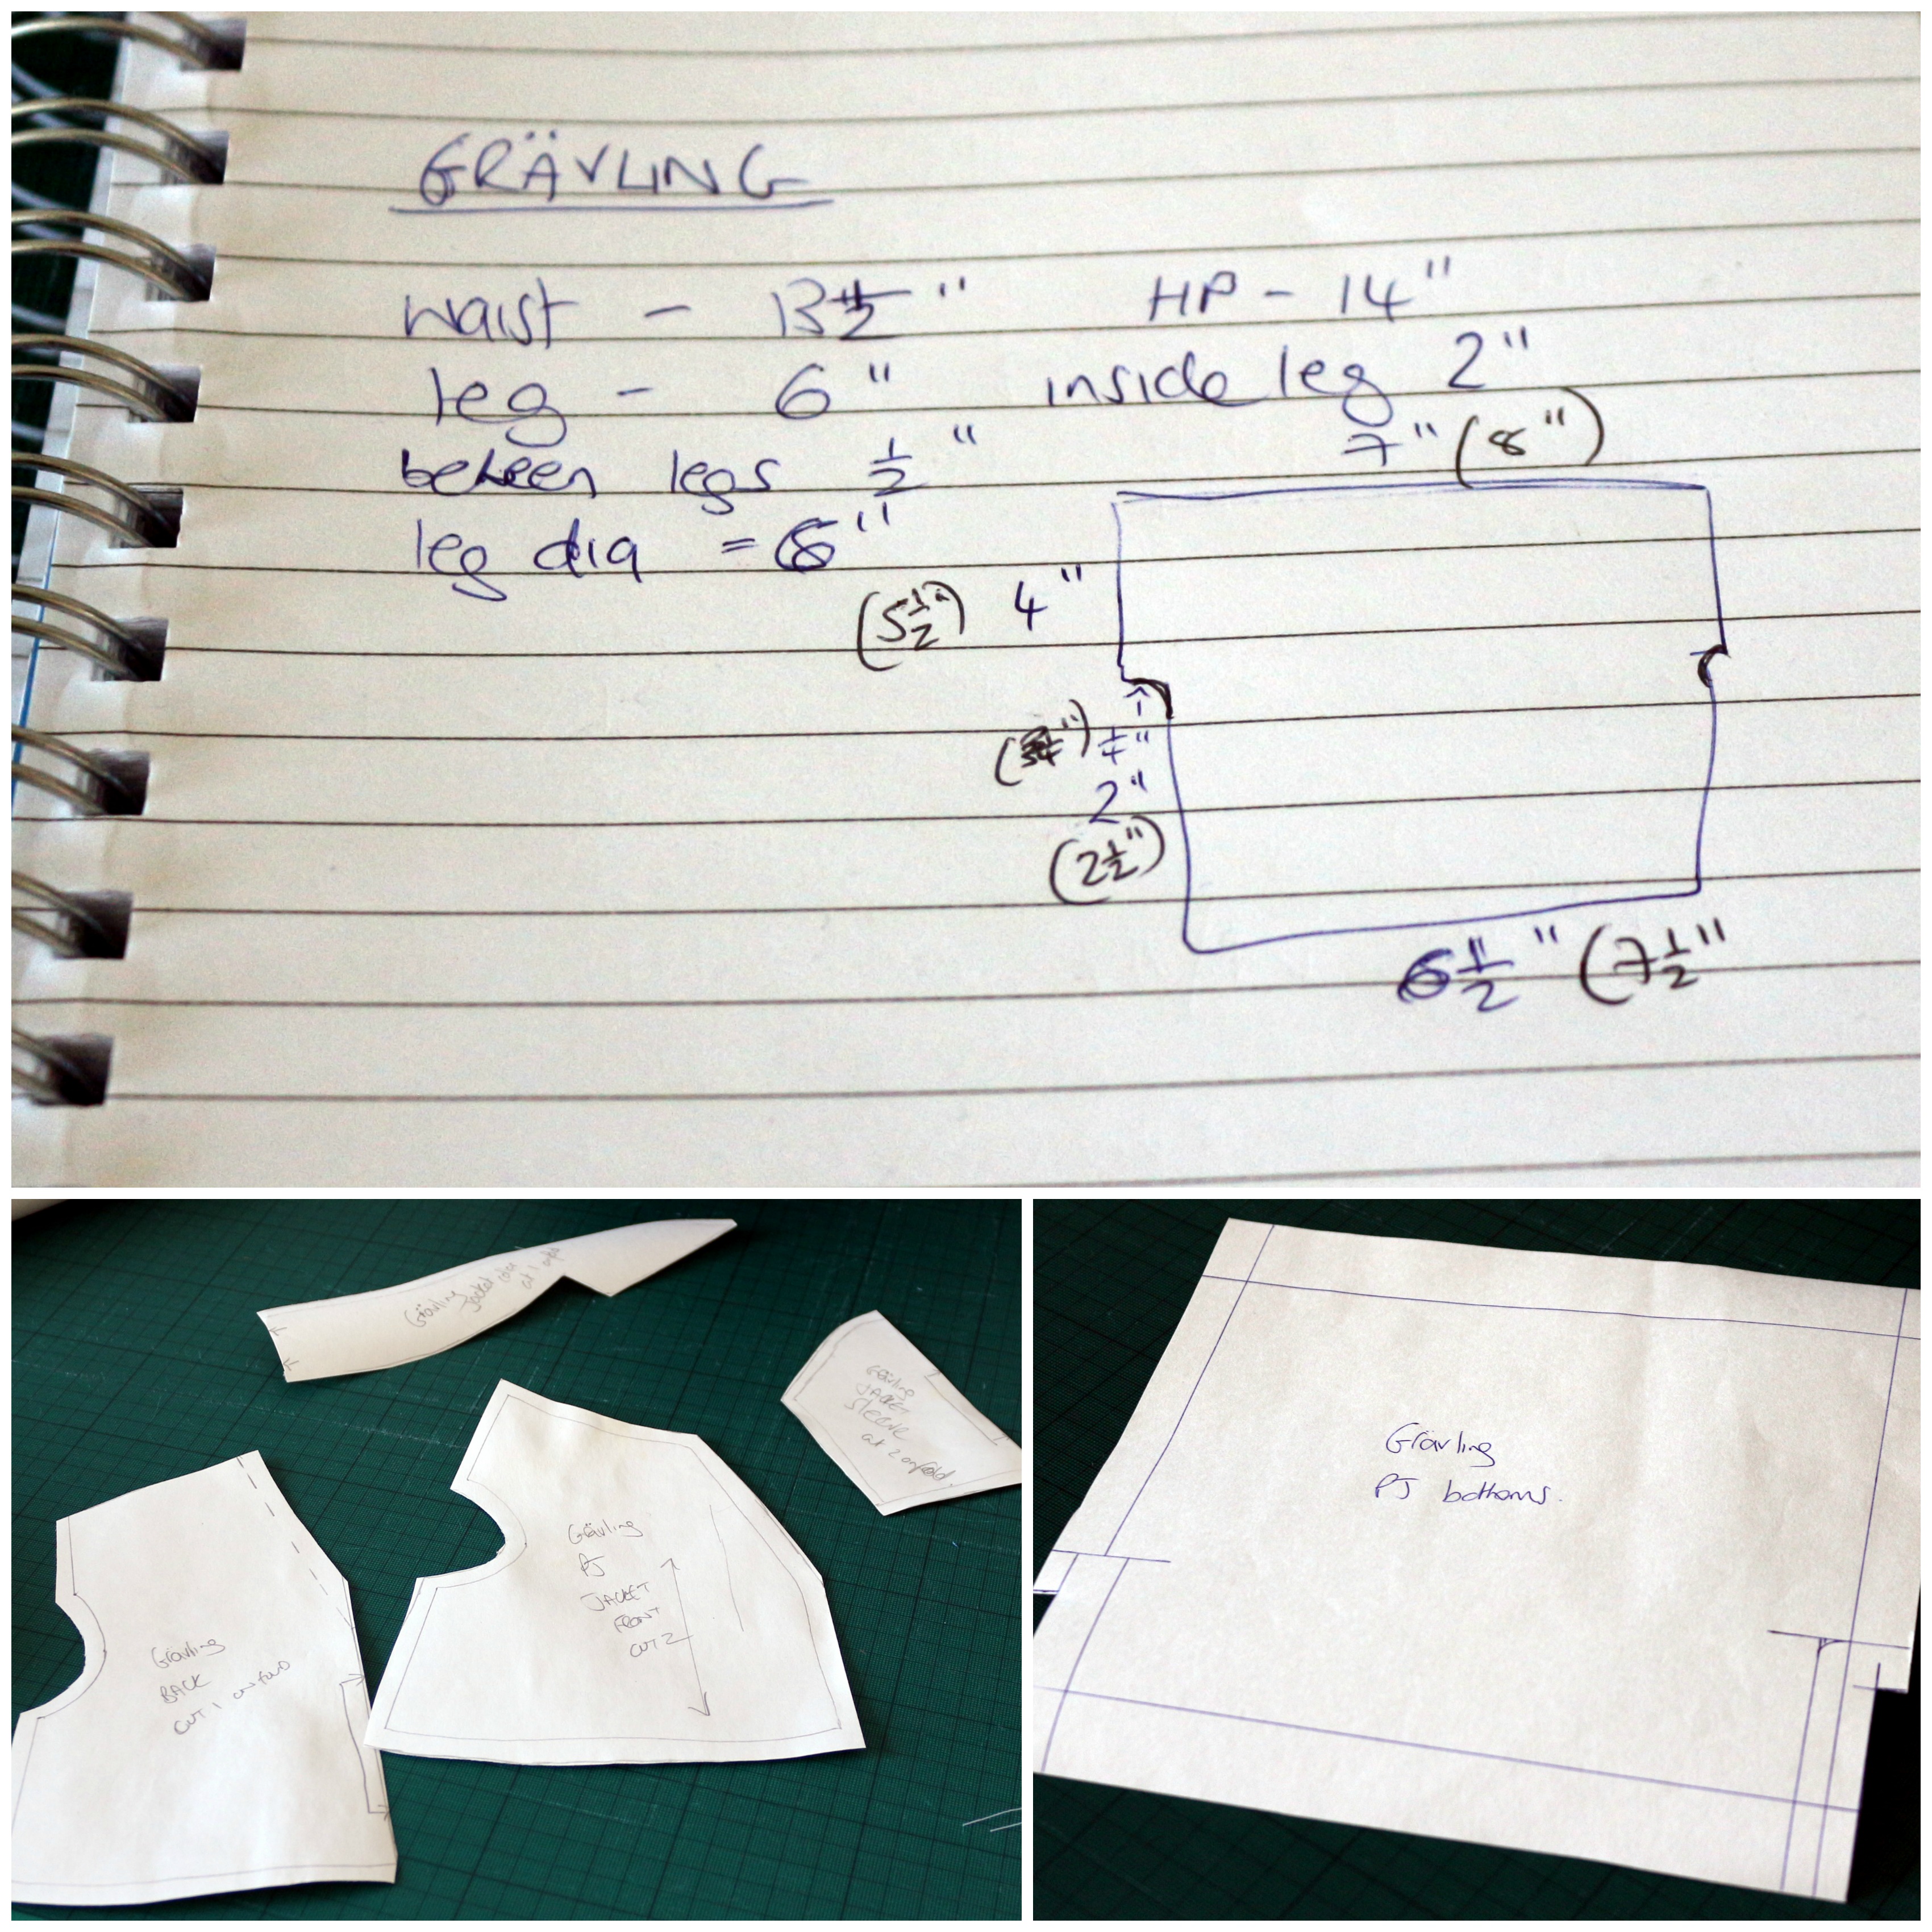 GRÄVLING
waist - 13½" HP - 14"
leg - 6" inside leg 2"
between legs ½"
leg dia = 8"
7" (8")
(5½") 4"
¼"
2"
(2½")
6½" (7½"
Grävling
Jacket
cut 1 on fold
Grävling
JACKET
Sleeve
cut 2 on fold
Grävling
PJ
JACKET
FRONT
CUT 2
Grävling
BACK
CUT 1 on FOLD
Grävling
PJ bottoms.